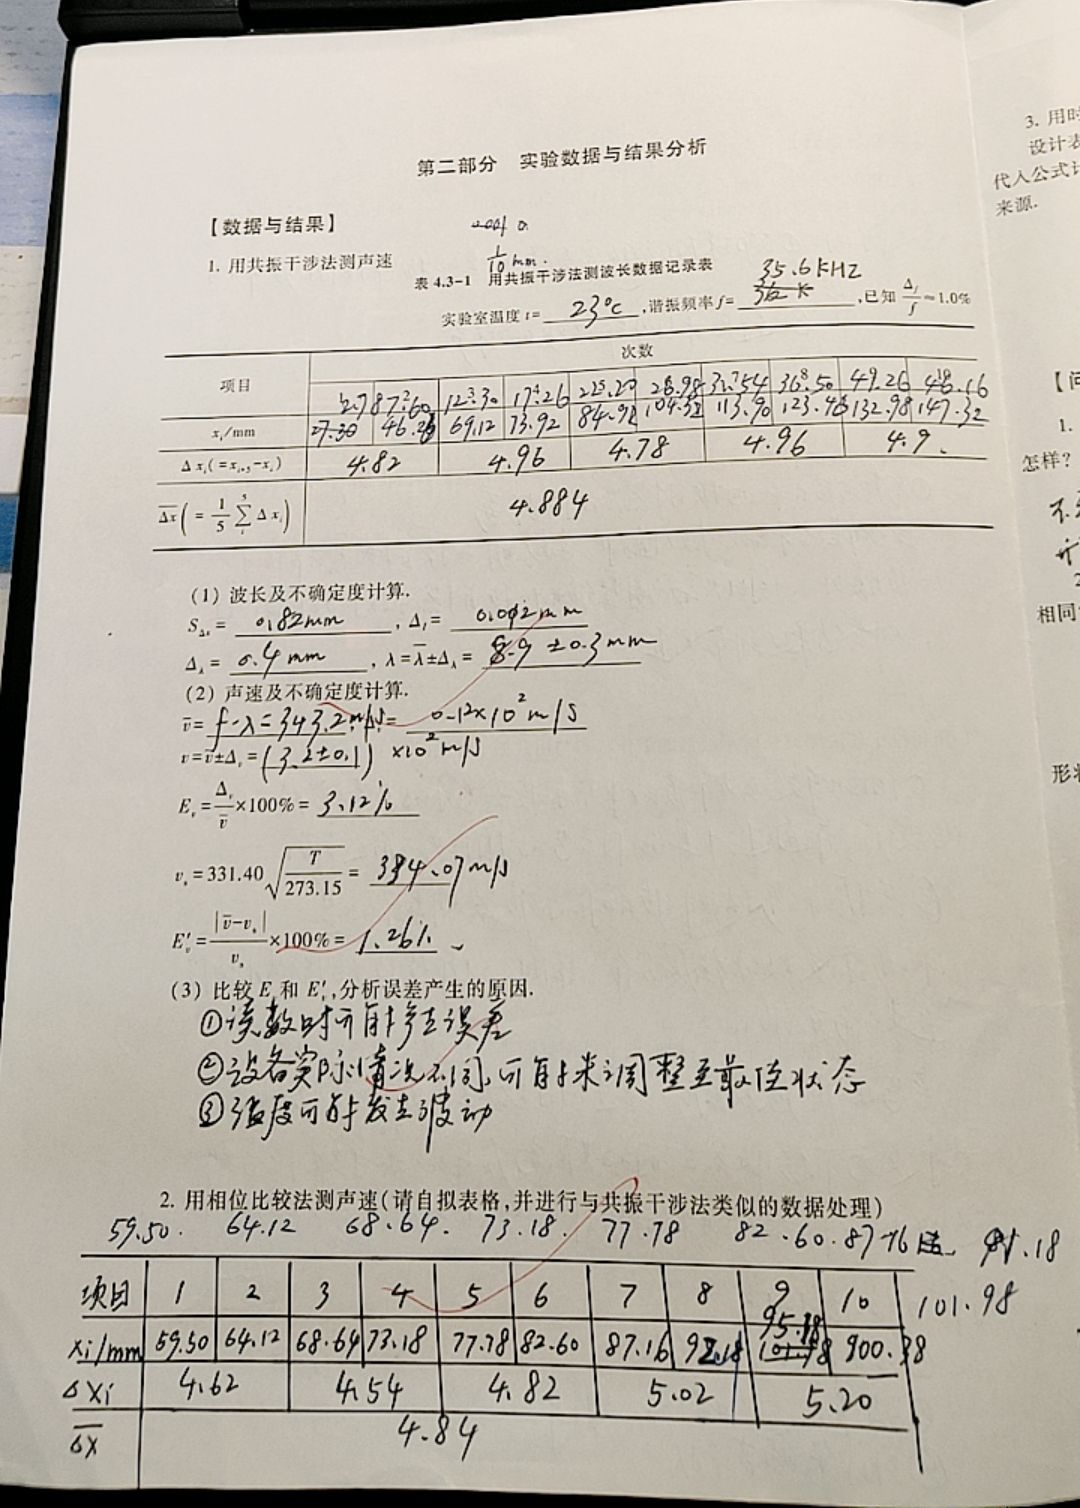 第二部分 实验数据与结果分析
【数据与结果】
1. 用共振干涉法测声速
1/10 mm.
表 4.3-1 用共振干涉法测波长数据记录表
35.6KHZ
实验室温度 t= 23°C ,谐振频率 f= ,已知 Δf/f=1.0%
项目 次数
2.78 7.60 12.30 17.26 22.20 26.98 31.54 36.50 49.26 46.16
xi/mm 27.30 46.26 69.12 73.92 84.92 104.32 113.90 123.46 132.98 147.32
Δxi(=xi+5-xi) 4.82 4.96 4.78 4.96 4.9
Δx(=1/5 ∑ Δxi) 4.884
(1) 波长及不确定度计算.
SΔx= 0.82mm , ΔI= 0.012mm
Δλ= 0.4mm , λ=λ±Δλ= 8.9 ±0.3mm
(2) 声速及不确定度计算.
v= f·λ=343.2m/s Δv= 0.12×10²m/s
v=v±Δv=(3.2±0.1) ×10²m/s
Ev=Δv/v×100%= 3.12%
vs=331.40√T/273.15= 384.07m/s
E'v=|v-vs|/vs×100%= 1.26%
(3) 比较 Ev和 E'v,分析误差产生的原因.
①读数时可能产生误差
②设备实际情况不同,可能未调整至最佳状态
③温度可能发生波动
2. 用相位比较法测声速(请自拟表格,并进行与共振干涉法类似的数据处理)
59.50. 64.12 68.64. 73.18. 77.78 82.60. 87.16 91.18
项目 1 2 3 4 5 6 7 8 9 10 101.98
95.18
xi/mm 59.50 64.12 68.64 73.18 77.78 82.60 87.16 92.18 900.38
ΔXi 4.62 4.54 4.82 5.02 5.20
ΔX 4.84
3. 用时
设计表
代入公式计
来源.
【问
1.
怎样?
相同
形状